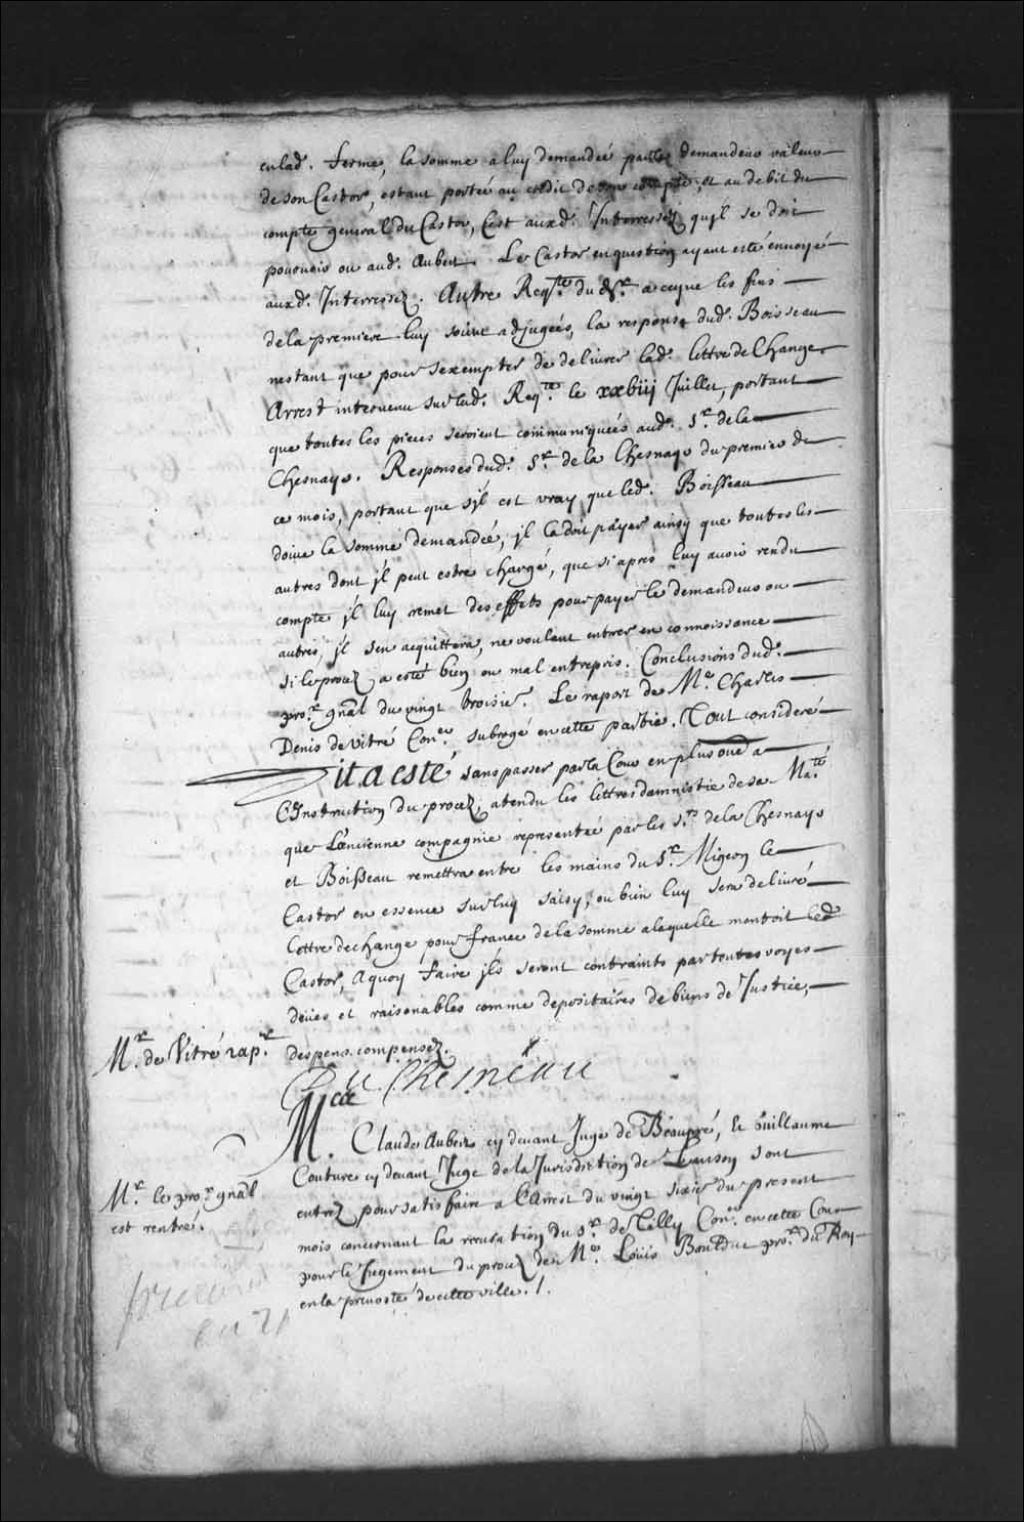 en lad. ferme, la somme a luy demandée par les demandeurs valeur
de son Castor, estant portée au credit de son compte, et au debit du
compte general du Castor, C'est auxd. Interressez qu'jl se doit
pouruoir ou aud. Aubert. Le Castor en question ayant esté enuoyé
auxd. Interressez. Autre Reqte. du d. Sr. a ceque les fins
dela premiere luy soient adjugées, la response dud. Boisseau
nestant que pour sexempter de deliurer lad. lettre de Change
Arrest interuenu sur lad. Reqte. le xxbiij Juillet, portant
que toutes les pieces seroient communiquées aud. Sr. de la
Chesnaye. Responses dud. Sr. de la Chesnaye du premier de
ce mois, portant que s'jl est vray que led. Boisseau
doiue la somme demandée, jl la doit payer ainsy que toutes les
autres dont jl peut estre chargé, que si apres luy auoir rendu
compte jl luy remet des effets pour payer le demandeur ou
autres, jl s'en acquittera, ne voulant entrer en connoissance
si le procez a esté bien ou mal entrepris. Conclusions dud.
pror. gnãl du vingt troisie. Le raport de Me. Charles
Denis de Vitré Coner. subrogé en cette partie. Tout consideré
Dit a esté sans passer par la Cour en plus oue a
L'Instruction du procez, atendu les lettres damnistie de sa Maté
que L'encienne compagnie representée par les Srs. de la Chesnaye
et Boisseau remettra entre les mains du Sr. Migeon le
Castor en essence sur luy saisy, ou bien luy sera deliuré
lettre de change pour france de la somme a laquelle montoit led.
Castor, A quoy faire jls seront contraints par toutes voyes
deües et raisonables comme depositaires de biens de Justice,
despens compensez.
Mr. de Vitré rapr.
Du Chesneau
M. Claude Aubert cy deuant Juge de Beaupré, Et Guillaume
Couture cy deuant Juge de la Jurisdiction de Lauson sont
entrez pour satisfaire a l'Arrest du vingt sixie du present
mois concernant la recusation du Sr. de Tilly Coner. en cette Cour
pour le Jugement du procez de Me. Loüis Boulduc pror. du Roy
en la preuosté de cette ville. /.
Mr. le pror. gnãl
est rentré.